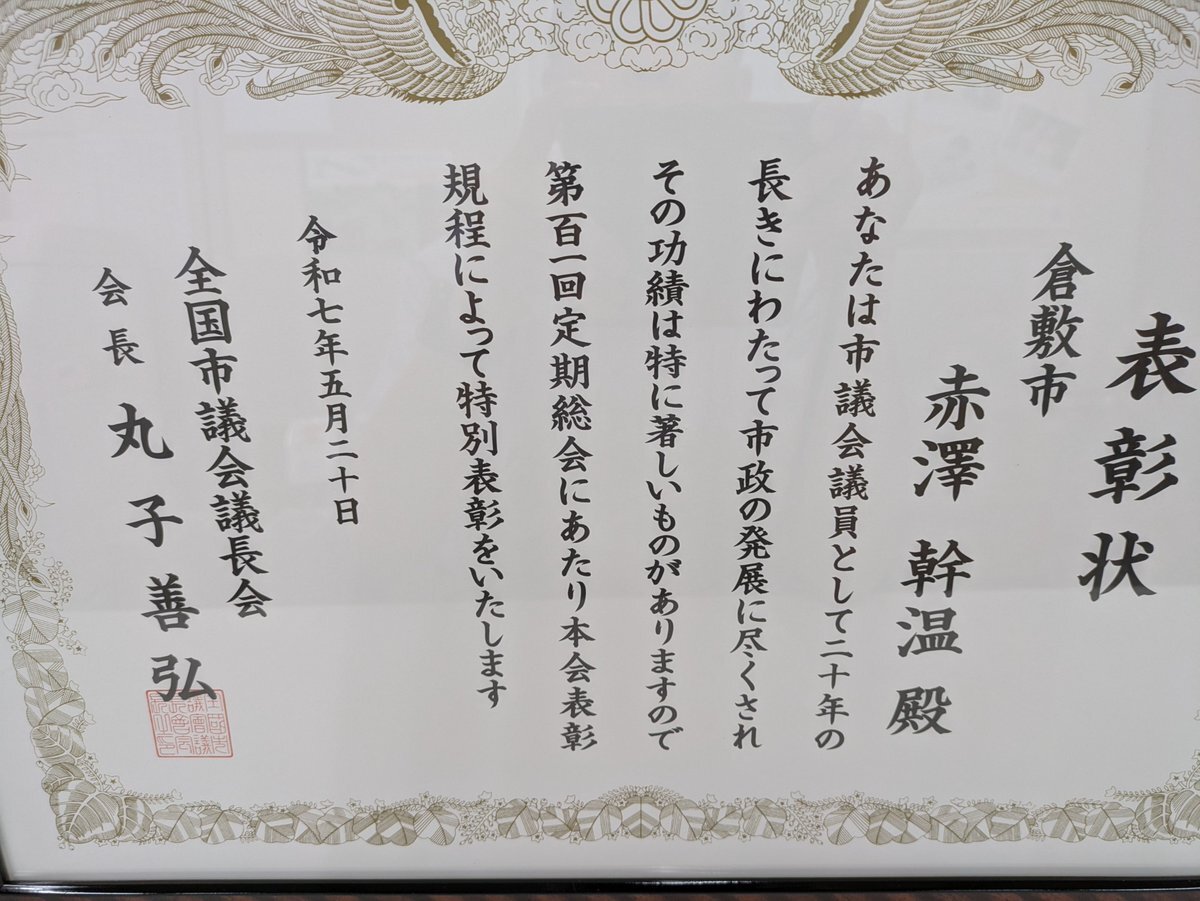 表彰状
倉敷市
赤澤幹温殿
あなたは市議会議員として二十年の
長きにわたって市政の発展に尽くされ
その功績は特に著しいものがありますので
第百一回定期総会にあたり本会表彰
規程によって特別表彰をいたします
令和七年五月二十日
全国市議会議長会
会長 丸子善弘